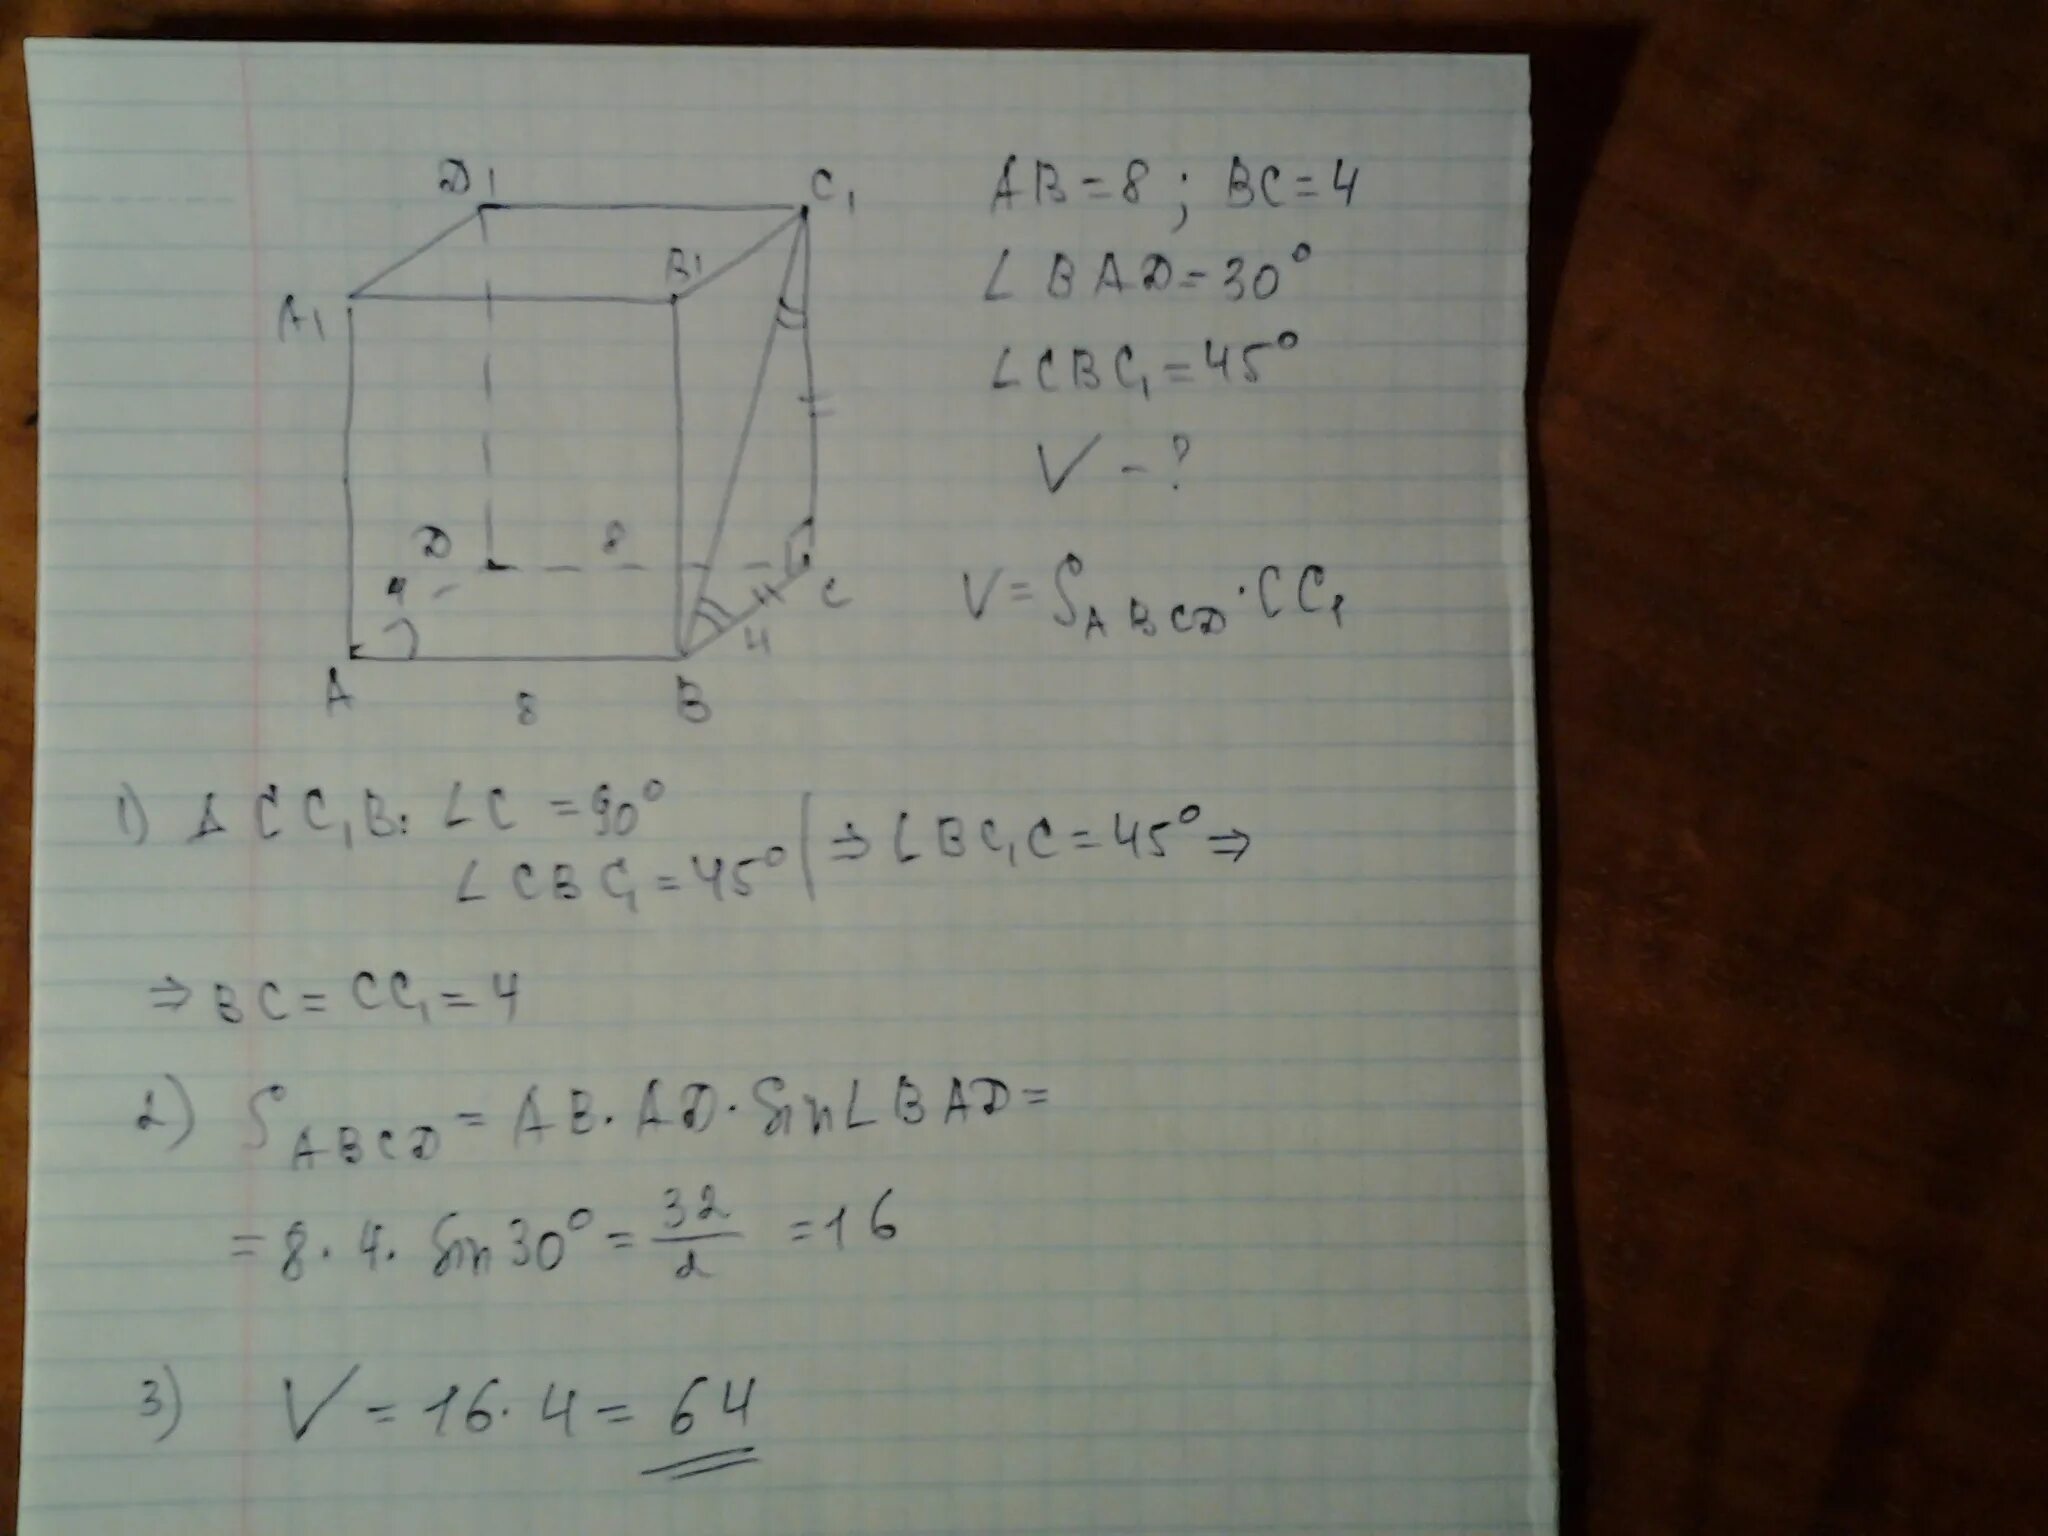 D1 C1
B1
A1
D 8
4 C
4
A 8 B
AB = 8 ; BC = 4
∠BAD = 30°
∠CBC₁ = 45°
V - ?
V = S_ABCD · CC₁
1) Δ CC₁B: ∠C = 90°
∠CBC₁ = 45° | ⇒ ∠BC₁C = 45° ⇒
⇒ BC = CC₁ = 4
2) S_ABCD = AB · AD · Sin∠BAD =
= 8 · 4 · Sin30° = 32/2 = 16
3) V = 16 · 4 = 64